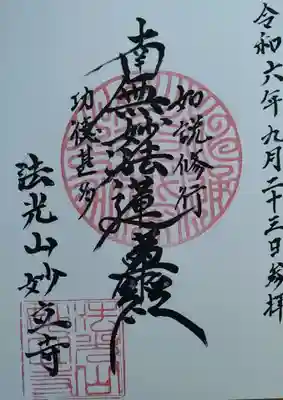 令和六年九月二十三日参拝
如説修行
南無妙法蓮華経
功徳甚多
法光山妙立寺